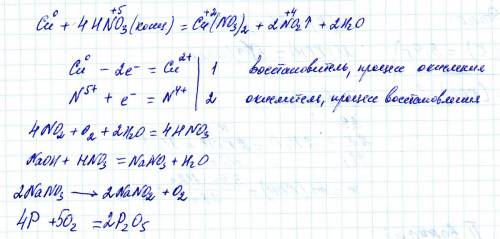 Cu⁰ + 4HN⁺⁵O₃(конц) = Cu⁺²(NO₃)₂ + 2N⁺⁴O₂↑ + 2H₂O
Cu⁰ − 2e⁻ = Cu²⁺ | 1 восстановитель, процесс окисления
N⁵⁺ + e⁻ = N⁴⁺ | 2 окислитель, процесс восстановления
4NO₂ + O₂ + 2H₂O = 4HNO₃
NaOH + HNO₃ = NaNO₃ + H₂O
2NaNO₃ → 2NaNO₂ + O₂
4P + 5O₂ = 2P₂O₅